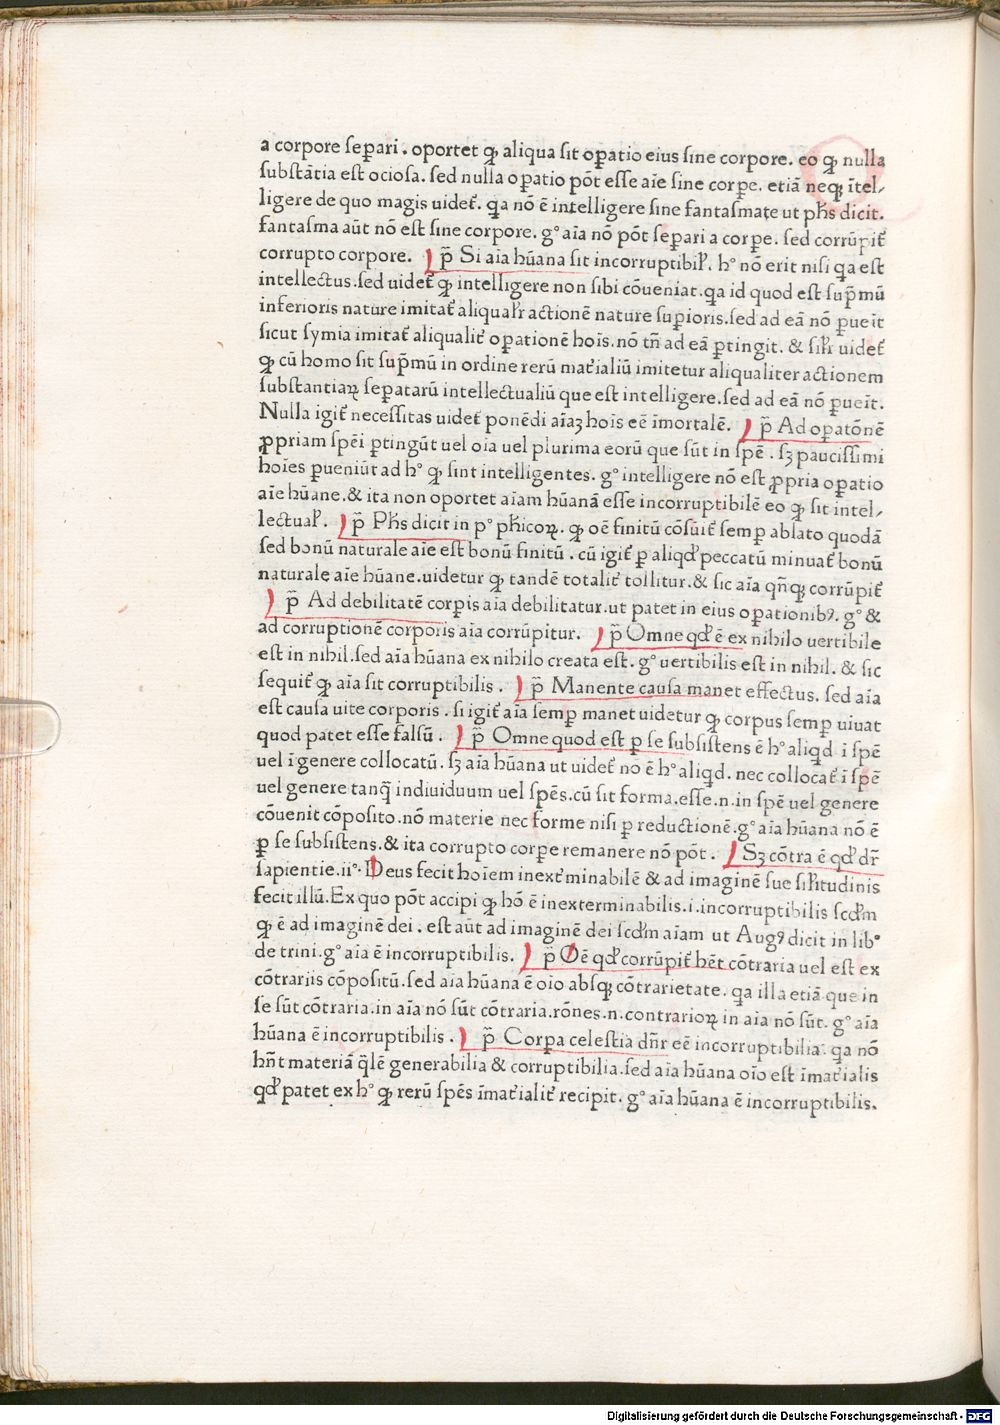 a corpore seꝑari . oportet ꝙ aliqua sit oꝑatio eius sine corpore. eo ꝙ nulla
substãtia est ociosa. sed nulla oꝑatio põt esse aĩe sine corꝑe. etiã neqꝫ ĩtel/
ligere de quo magis uidet᷑. qa nõ ẽ intelligere sine fantasmate ut pħs dicit.
fantasma aũt nõ est sine corpore. g° aĩa nõ põt seꝑari a corꝑe. sed corrũpit᷑
corrupto corpore. p̃ Si aĩa hũana sit incorruptibił. h° nõ erit nisi qa est
intellectus.sed uidet᷑ ꝙ intelligere non sibi cõueniat.qa id quod est sup̃mũ
inferioris nature imitat᷑ aliqualr̃ actionẽ nature suꝑioris.sed ad eã nõ ꝑueĩt
sicut symia imitat᷑ aliqualit᷑ oꝑationẽ hoĩs.nõ tñ ad eã ꝑtingit. & sił'r uidet᷑
ꝙ cũ homo sit sup̃mũ in ordine rerũ mat᷑ialiũ imitetur aliqualiter actionem
substantiaꝝ seꝑatarũ intellectualiũ que est intelligere.sed ad eã nõ ꝑueĩt.
Nulla igit᷑ necessitas uidet᷑ ponẽdi aĩaꝫ hoĩs eẽ ĩmortalẽ. p̃ Ad oꝑatõnẽ
ꝓpriam spẽi ꝑtingũt uel oĩa uel plurima eorũ que sũt in spẽ . sꝫ paucissimi
hoĩes ꝑueniũt ad h° ꝙ sint intelligentes. g° intelligere nõ est ꝓpria oꝑatio
aĩe hũane.& ita non oportet aĩam hũanã esse incorruptibilẽ eo ꝙ sit intel/
lectuał. p̃ Pħs dicit in p° pħicoꝝ. ꝙ oẽ finitũ cõsũit᷑ semꝑ ablato quodã
sed bonũ naturale aĩe est bonũ finitũ . cũ igit᷑ ꝑ aliqđ peccatũ minuat᷑ bonũ
naturale aĩe hũane.uidetur ꝙ tandẽ totalit᷑ tollitur.& sic aĩa qñqꝫ corrũpit᷑
p̃ Ad debilitatẽ corꝑis aĩa debilitatur.ut patet in eius oꝑationibꝰ. g° &
ad corruptionẽ corporis aĩa corrũpitur. p̃ Omne qđ ẽ ex nihilo uertibile
est in nihil.sed aĩa hũana ex nihilo creata est. g° uertibilis est in nihil. & sic
sequit᷑ ꝙ aĩa sit corruptibilis . p̃ Manente causa manet effectus. sed aĩa
est causa uite corporis . si igit᷑ aĩa semꝑ manet uidetur ꝙ corpus semꝑ uiuat
quod patet esse falsũ . p̃ Omne quod est ꝑ se subsistens ẽ h° aliqd ĩ spẽ
uel ĩ genere collocatũ. sꝫ aĩa hũana ut uidet᷑ nõ ẽ h° aliqd. nec collocat᷑ ĩ spẽ
uel genere tanq̃ indiuiduum uel spẽs.cũ sit forma.esse.n.in spẽ uel genere
cõuenit cõposito.nõ materie nec forme nisi ꝑ reductionẽ.g° aĩa hũana nõ ẽ
ꝑ se subsistens.& ita corrupto corꝑe remanere nõ põt . Sꝫ cõtra ẽ qđ dr̃
sapientie.ii°. Deus fecit hoĩem inext᷑minabilẽ & ad imaginẽ sue siłitudinis
fecit illũ.Ex quo põt accipi ꝙ hõ ẽ inexterminabilis.i.incorruptibilis scđm
ꝙ ẽ ad imaginẽ dei . est aũt ad imaginẽ dei scđm aĩam ut Augꝰ dicit in lib°
de trini.g° aĩa ẽ incorruptibilis. p̃ Oẽ qđ corrũpit᷑ hẽt cõtraria uel est ex
cõtrariis cõpositũ.sed aĩa hũana ẽ oĩo absqꝫ cõtrarietate. qa illa etiã que in
se sũt cõtraria.in aĩa nõ sũt cõtraria.rõnes.n.contrarioꝝ in aĩa nõ sũt. g° aĩa
hũana ẽ incorruptibilis . p̃ Corꝑa celestia dñr eẽ incorruptibilia. qa nõ
hñt materiã q̃lẽ generabilia & corruptibilia.sed aĩa hũana oĩo est ĩmat᷑ialis
qđ patet ex h° ꝙ rerũ spẽs ĩmat᷑ialit᷑ recipit. g° aĩa hũana ẽ incorruptibilis.
Digitalisierung gefördert durch die Deutsche Forschungsgemeinschaft - DFG